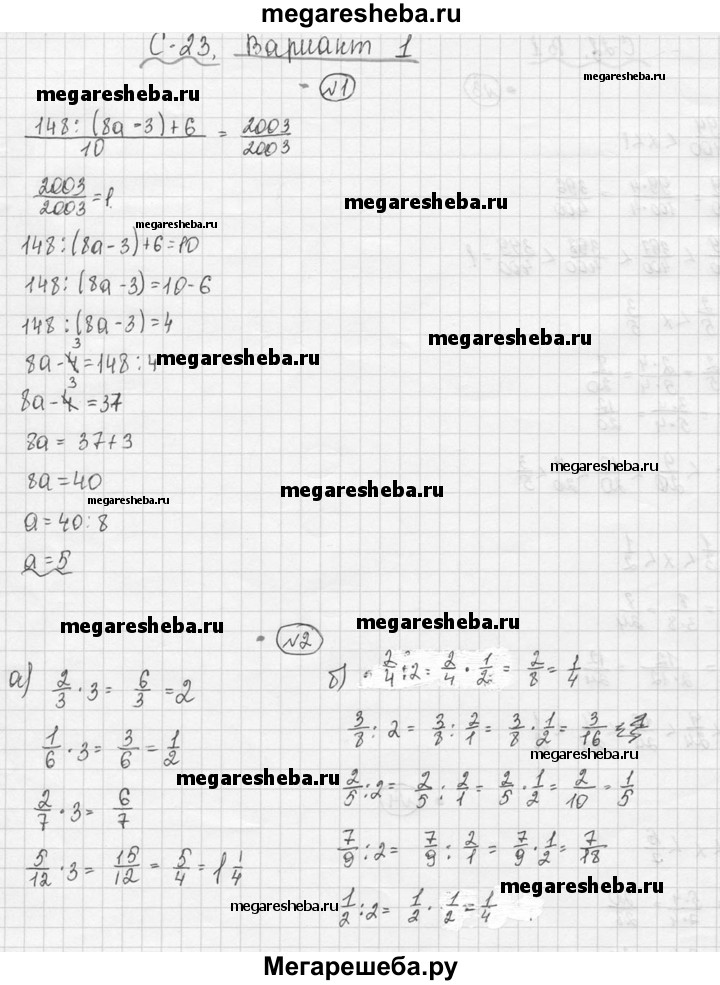 megaresheba.ru
С-23. Вариант 1
megaresheba.ru
megaresheba.ru
№1
(148:(8a-3)+6)/10 = 2003/2003
2003/2003 = 1.
megaresheba.ru
megaresheba.ru
148:(8a-3)+6=10
148:(8a-3)=10-6
148:(8a-3)=4
megaresheba.ru
8a-3=148:4
megaresheba.ru
8a-3=37
8a = 37+3
8a=40
megaresheba.ru
megaresheba.ru
a=40:8
a=5
megaresheba.ru
№2
megaresheba.ru
а) 2/3 · 3 = 6/3 = 2
1/6 · 3 = 3/6 = 1/2
2/7 · 3 = 6/7
5/12 · 3 = 15/12 = 5/4 = 1 1/4
б) 2/4 : 2 = 2/4 · 1/2 = 2/8 = 1/4
3/8 : 2 = 3/8 : 2/1 = 3/8 · 1/2 = 3/16
megaresheba.ru
megaresheba.ru
2/5 : 2 = 2/5 : 2/1 = 2/5 · 1/2 = 2/10 = 1/5
7/9 : 2 = 7/9 : 2/1 = 7/9 · 1/2 = 7/18
megaresheba.ru
megaresheba.ru
1/2 : 2 = 1/2 · 1/2 = 1/4
Мегарешеба.ру